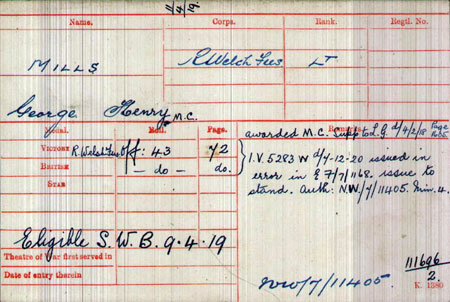 11/4/19.
Name. Corps. Rank. Regtl. No.
MILLS R Welch Fus LT
George Henry M.C.
Medal. Roll. Page. Remarks.
awarded M.C. Supp to L.G. d/4/2/18 Page
VICTORY R. Welsh Fus Off: 43 72
BRITISH — do — do.
STAR
I.V. 5283 W d/7-12-20 issued in
error in £ 7/7/1168. issue to
stand. Auth: N.W./7/11405. Min. 4.
Eligible S.W.B. 9.4.19
Theatre of War first served in
Date of entry therein
NW/7/11405.
111696/2.
K. 1380